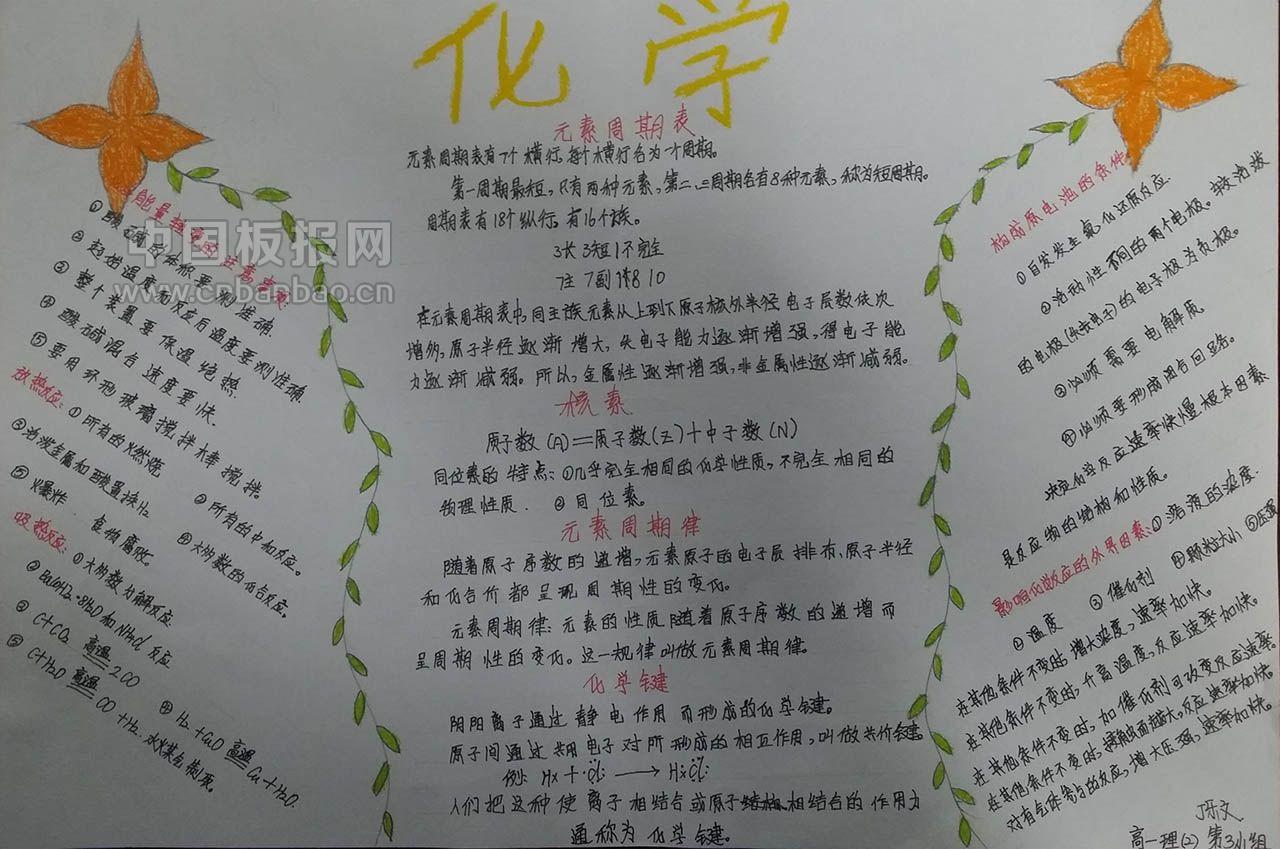 化学
元素周期表
元素周期表有7个横行,每个横行名为一个周期。
第一周期最短,只有两种元素,第二、三周期各有8种元素,称为短周期。
周期表有18个纵行,有16个族。
3长3短1不完全
7主7副1Ⅷ10
在元素周期表中,同主族元素从上到下原子核外半径电子层数依次
增多,原子半径逐渐增大,失电子能力逐渐增强,得电子能
力逐渐减弱。所以,金属性逐渐增强,非金属性逐渐减弱。
核素
原子数(A)=质子数(Z)+中子数(N)
同位素的特点:①几乎完全相同的化学性质,不完全相同的
物理性质. ②同位素。
元素周期律
随着原子序数的递增,元素原子的电子层排布、原子半径
和化合价都呈现周期性的变化。
元素周期律:元素的性质随着原子序数的递增而
呈周期性的变化。这一规律叫做元素周期律。
化学键
阴阳离子通过静电作用而形成的化学键。
原子间通过共用电子对所形成的相互作用,叫做共价键
例: H× + ·Cl: ⟶ H×Cl:
人们把这种使离子相结合或原子相结合的作用力
通称为化学键。
①酸、碱的体积要测准确.
②起始温度和反应后温度要测准确
③整个装置要保温绝热.
④酸碱混合速度要快.
⑤要用环形玻璃搅拌棒搅拌.
放热反应:①所有的燃烧 ②所有的中和反应。
③活泼金属和酸置换H₂ ④大多数的化合反应。
⑤爆炸 食物腐败。
吸热反应:①大多数分解反应
②Ba(OH)2·8H2O和NH4Cl反应
③C+CO₂ 高温 2CO ④H₂+CuO 高温 Cu+H₂O
⑤C+H₂O 高温 CO+H₂.水煤气制取。
构成原电池的条件
①自发发生氧化还原反应.
②活动性不同的两个电极。较活泼
的电极(失去电子)的电子极为负极。
③必须需要电解质.
④必须要形成闭合回路.
决定化学反应速率快慢根本因素
是反应物的结构和性质。
影响化学反应的外界因素:①溶液的浓度.
②温度 ③催化剂 ④颗粒大小 ⑤压强
在其他条件不变时,增大浓度,速率加快。
在其他条件不变时,升高温度,反应速率加快。
在其他条件不变的时,加催化剂可改变反应速率。
在其他条件不变时,接触面越大,反应速率加快。
对有气体参与的反应,增大压强,速率加快。
陈文
高一理(2) 第3小组
中国板报网
www.cnbanbao.cn